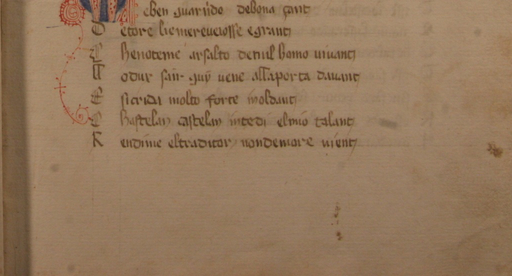 eben guarnido debona çant
E tore si emereveiosse egrant
h enoteme arsalto de nul homo vivant
T odur sain guy vene alla porta davant
E si crida molto forte inoldant
h astelan castelan intendi el mio talant
R endime el traditor non demore nient